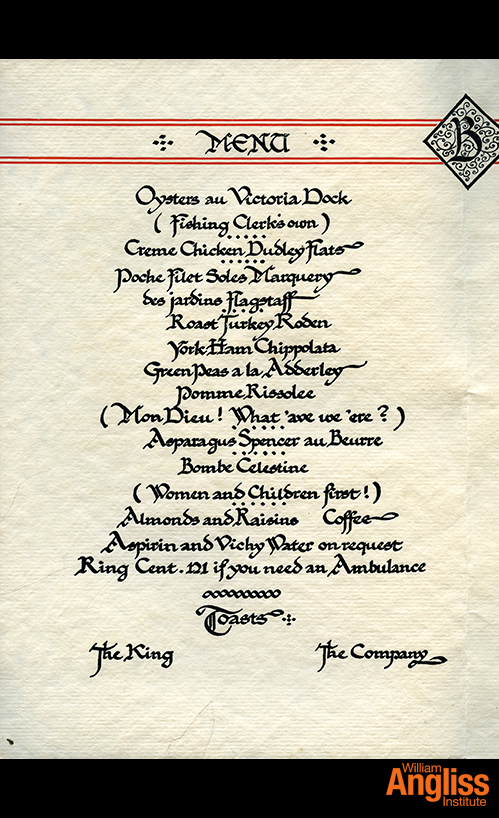 MENU
B
Oysters au Victoria Dock
( Fishing Clerk's own )
Creme Chicken Dudley Flats
Poche Filet Soles Marquery
des jardins Flagstaff
Roast Turkey Roden
York Ham Chippolata
Green Peas a la Adderley
Pomme Rissolee
( Mon Dieu ! What 'ave we 'ere ? )
Asparagus Spencer au Beurre
Bombe Celestine
( Women and Children first ! )
Almonds and Raisins Coffee
Aspirin and Vichy Water on request
Ring Cent. 121 if you need an Ambulance
Toasts
The King The Company
William
Angliss
Institute